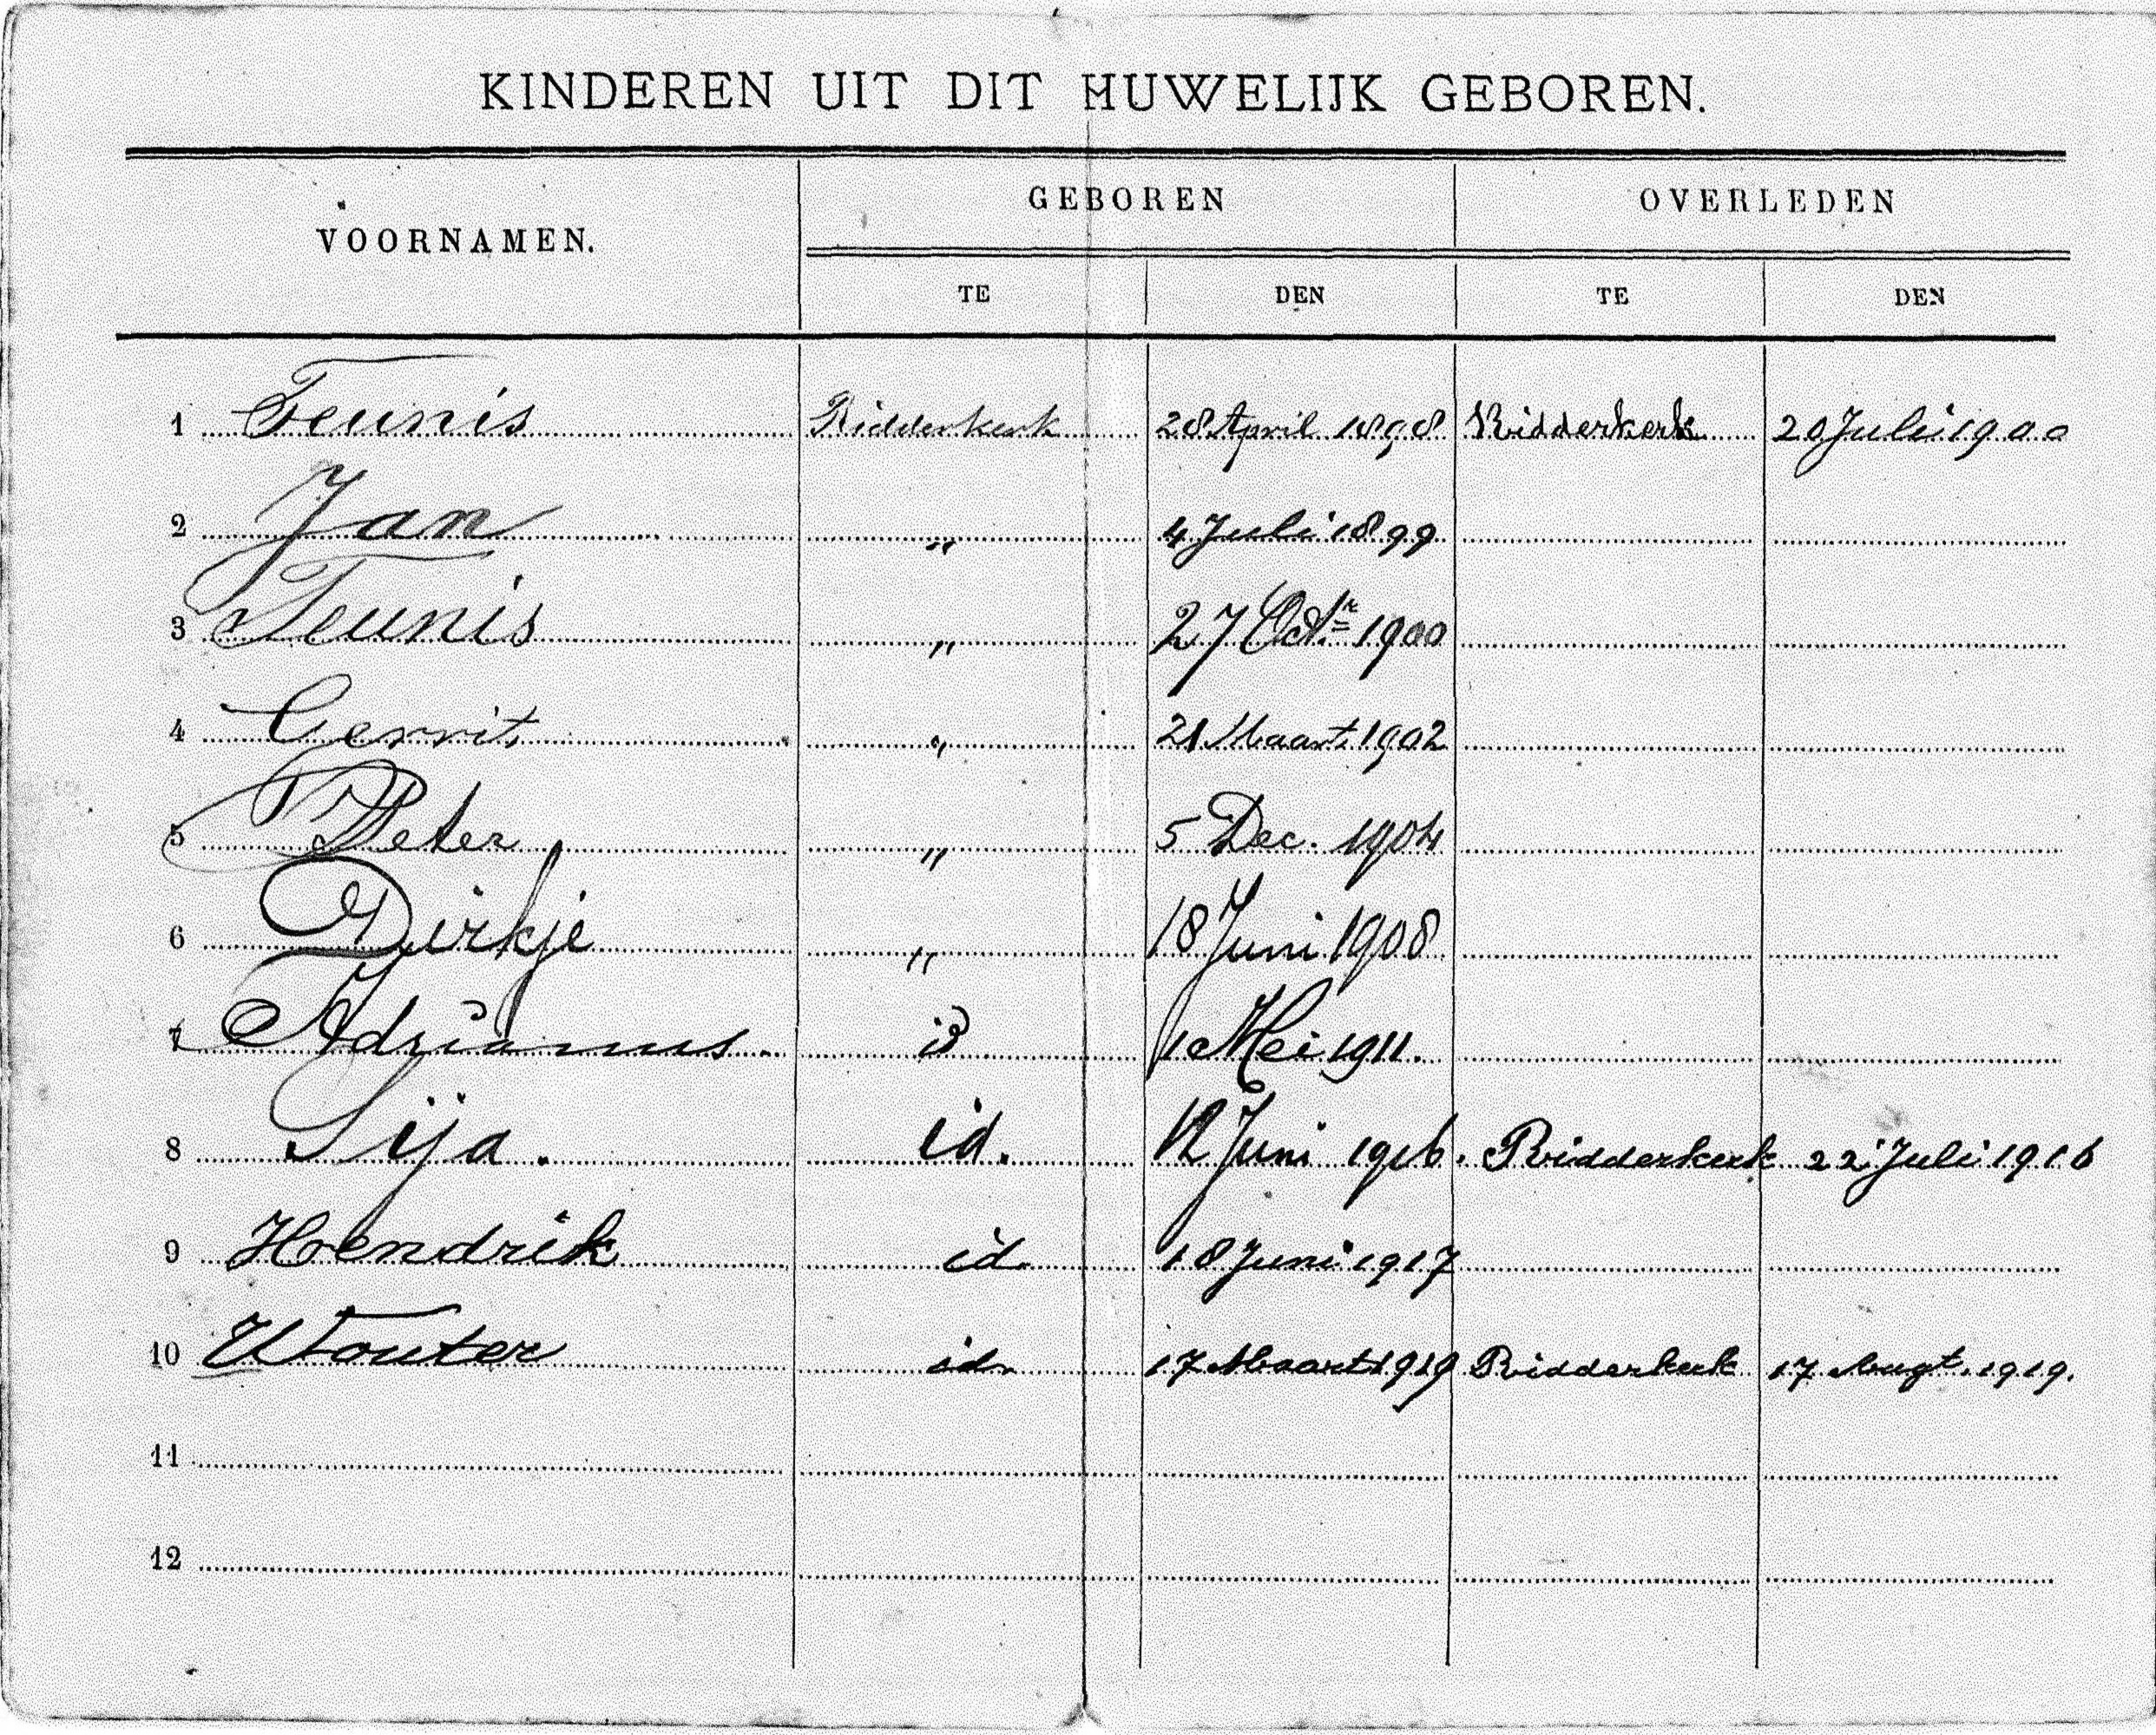 KINDEREN UIT DIT HUWELIJK GEBOREN.
VOORNAMEN. GEBOREN OVERLEDEN
TE DEN TE DEN
1 Teunis Ridderkerk 28 April 1898 Ridderkerk 20 Juli 1900
2 Jan " 4 Juli 1899
3 Teunis " 27 Octr 1900
4 Gerrit " 21 Maart 1902
5 Peter " 5 Dec. 1904
6 Dirkje " 18 Juni 1908
7 Adrianus. id 1 Mei 1911.
8 Sija. id. 12 Juni 1916. Ridderkerk 22 Juli 1916
9 Hendrik id. 18 Juni 1917
10 Wouter id. 17 Maart 1919 Ridderkerk 17 Augt. 1919.
11
12